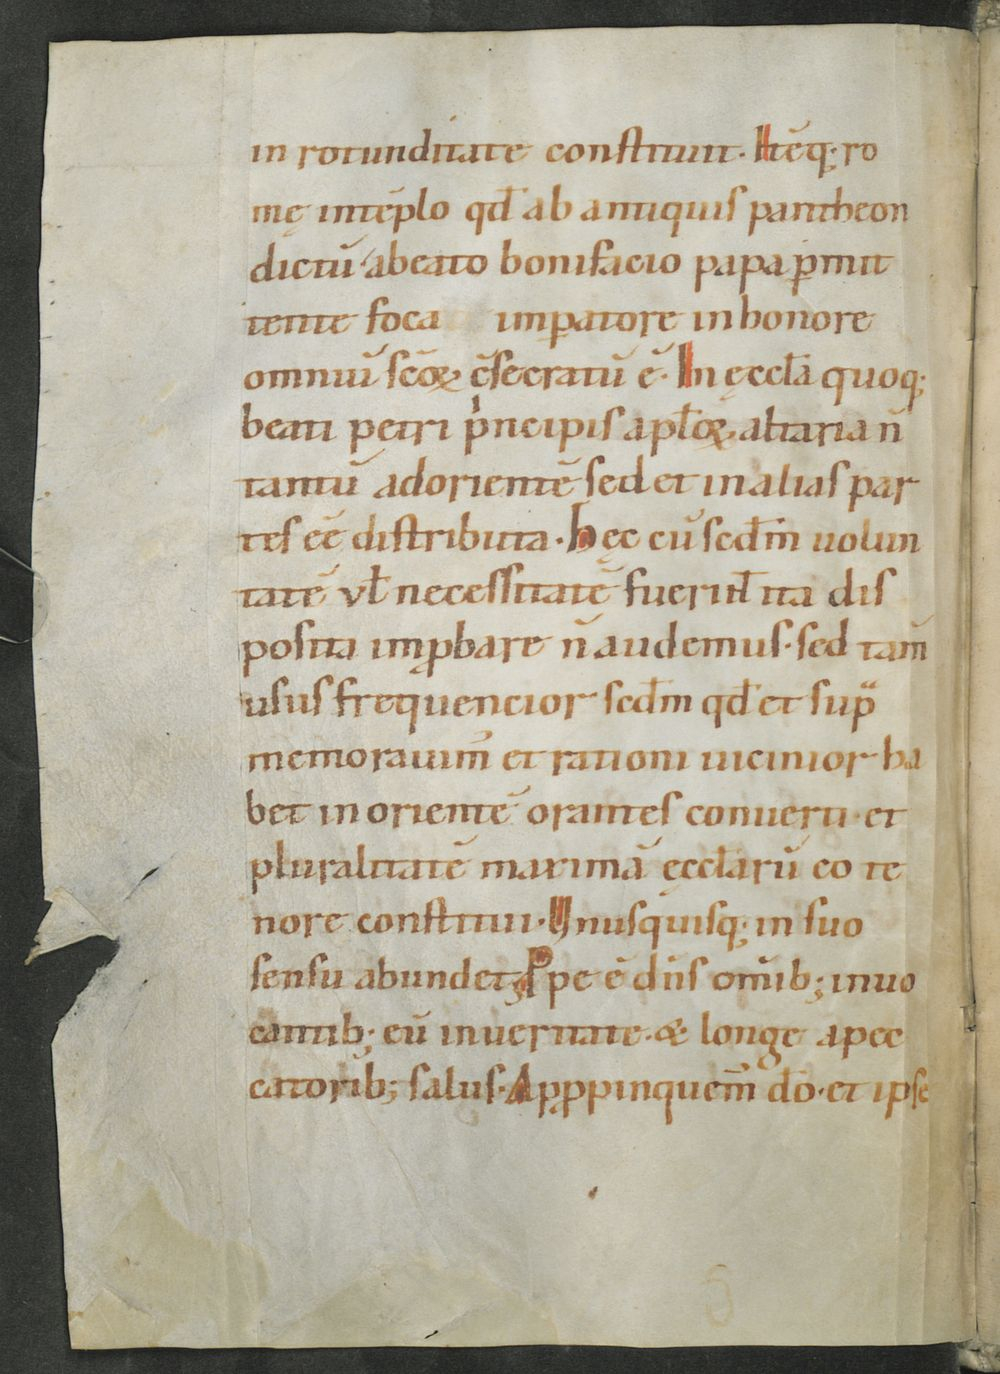 in rotunditate constituit. Itēq; ro
mę intēplo qđ ab antiquis pantheon
dictū abeato bonifacio papa ꝑmit
tente foca imꝑatore in honore
omniū scōꝝ cs̄ecratū ē. In ęccła quoq;
beati petri pͥncipis apłoꝝ altaria n̄
tantū adorientē sed et in alias par
tes eē distributa. hęc cū scđm uolun
tatē vł necessitatē fuerint ita dis
posita imꝓbare n̄ audemus. sed tam̄
usus frequencior scđm qđ et sup̄
memorauim̄ et rationi uicinior ha
bet in orientē orantes conuerti. et
pluralitatē maximā ęccłarū eo te
nore constitui. Unusquisq; in suo
sensu abundet. Ꝓpe ē dn̄s om̄ib; inuo
cantib; eū in ueritate. & longe apec
catorib; salus. Apꝓpinquem̄ dō. et ipse